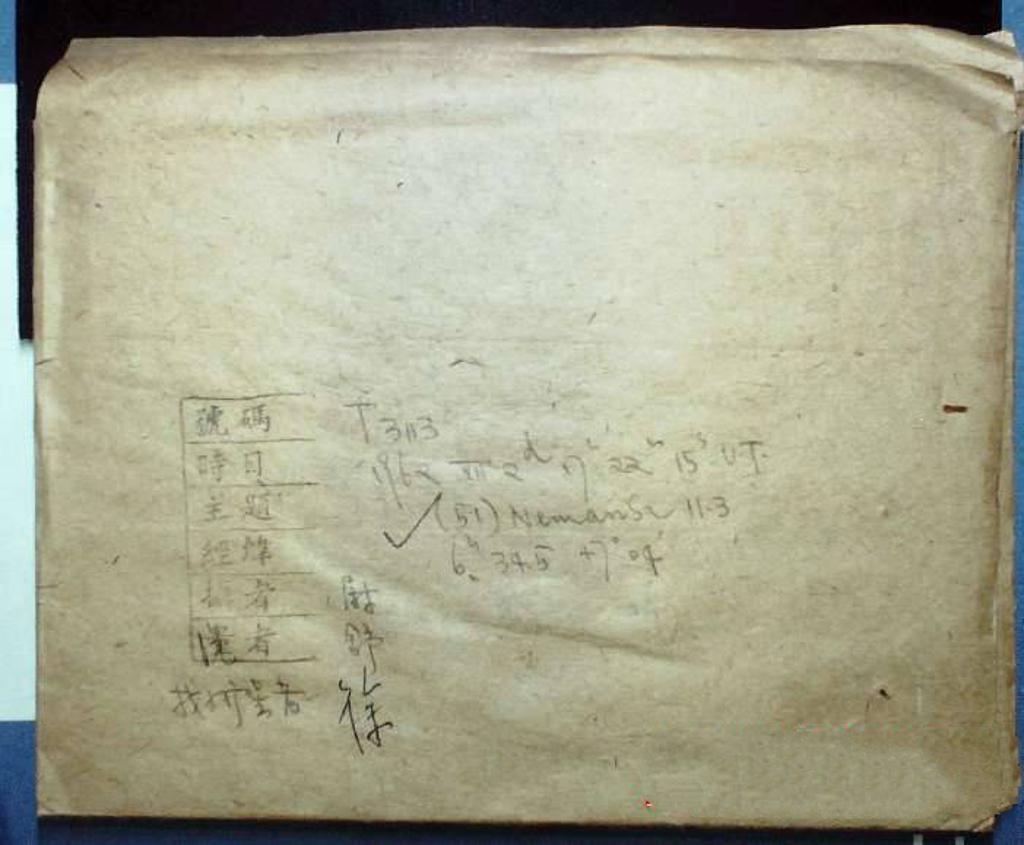 號碼 T 3113
時日 1962 XII 2d 17h 22m 15s UT.
主題 ✓(51) Nemansa 11.3
經緯 6h 34.5 +7° 04'
拍者
洗者 舒
找櫛星者 徐